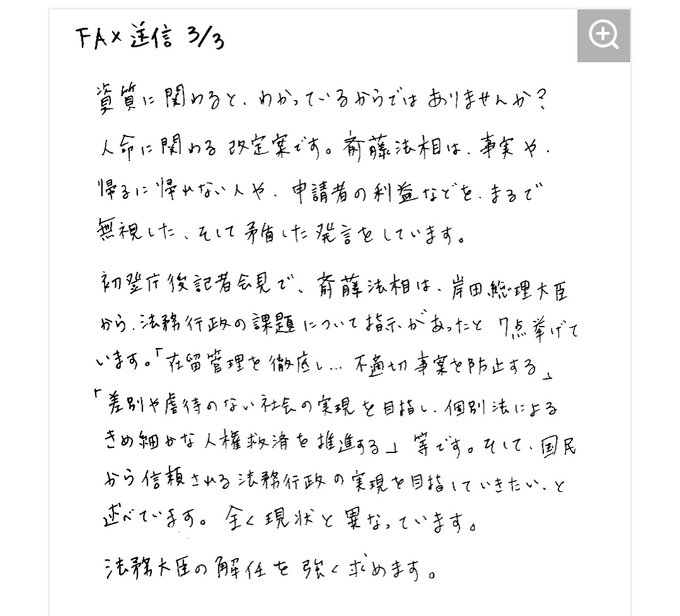 FAX 送信 3/3
資質に関わると、わかっているからではありませんか?
人命に関わる改定案です。斎藤法相は、事実や、
帰るに帰れない人や、申請者の利益などを、まるで
無視した、そして矛盾した発言をしています。
初登庁後記者会見で、斎藤法相は、岸田総理大臣
から、法務行政の課題について指示があったと 7点挙げて
います。「在留管理を徹底し… 不適切事案を防止する」
「差別や虐待のない社会の実現を目指し、個別法による
きめ細かな人権救済を推進する」等です。そして、国民
から信頼される法務行政の実現を目指していきたい、と
述べています。全く現状と異なっています。
法務大臣の解任を強く求めます。